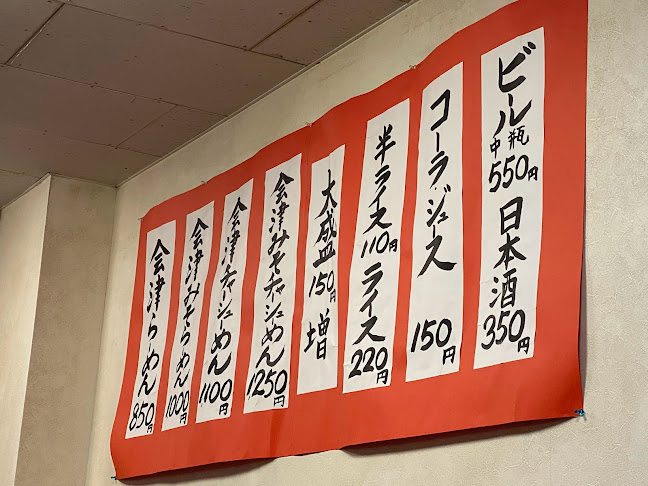 ビール中瓶550円 日本酒350円
コーラジュース150円
半ライス110円 ライス220円
大盛150円増
会津みそチャーシューめん1250円
会津チャーシューめん1100円
会津みそらーめん1000円
会津らーめん850円